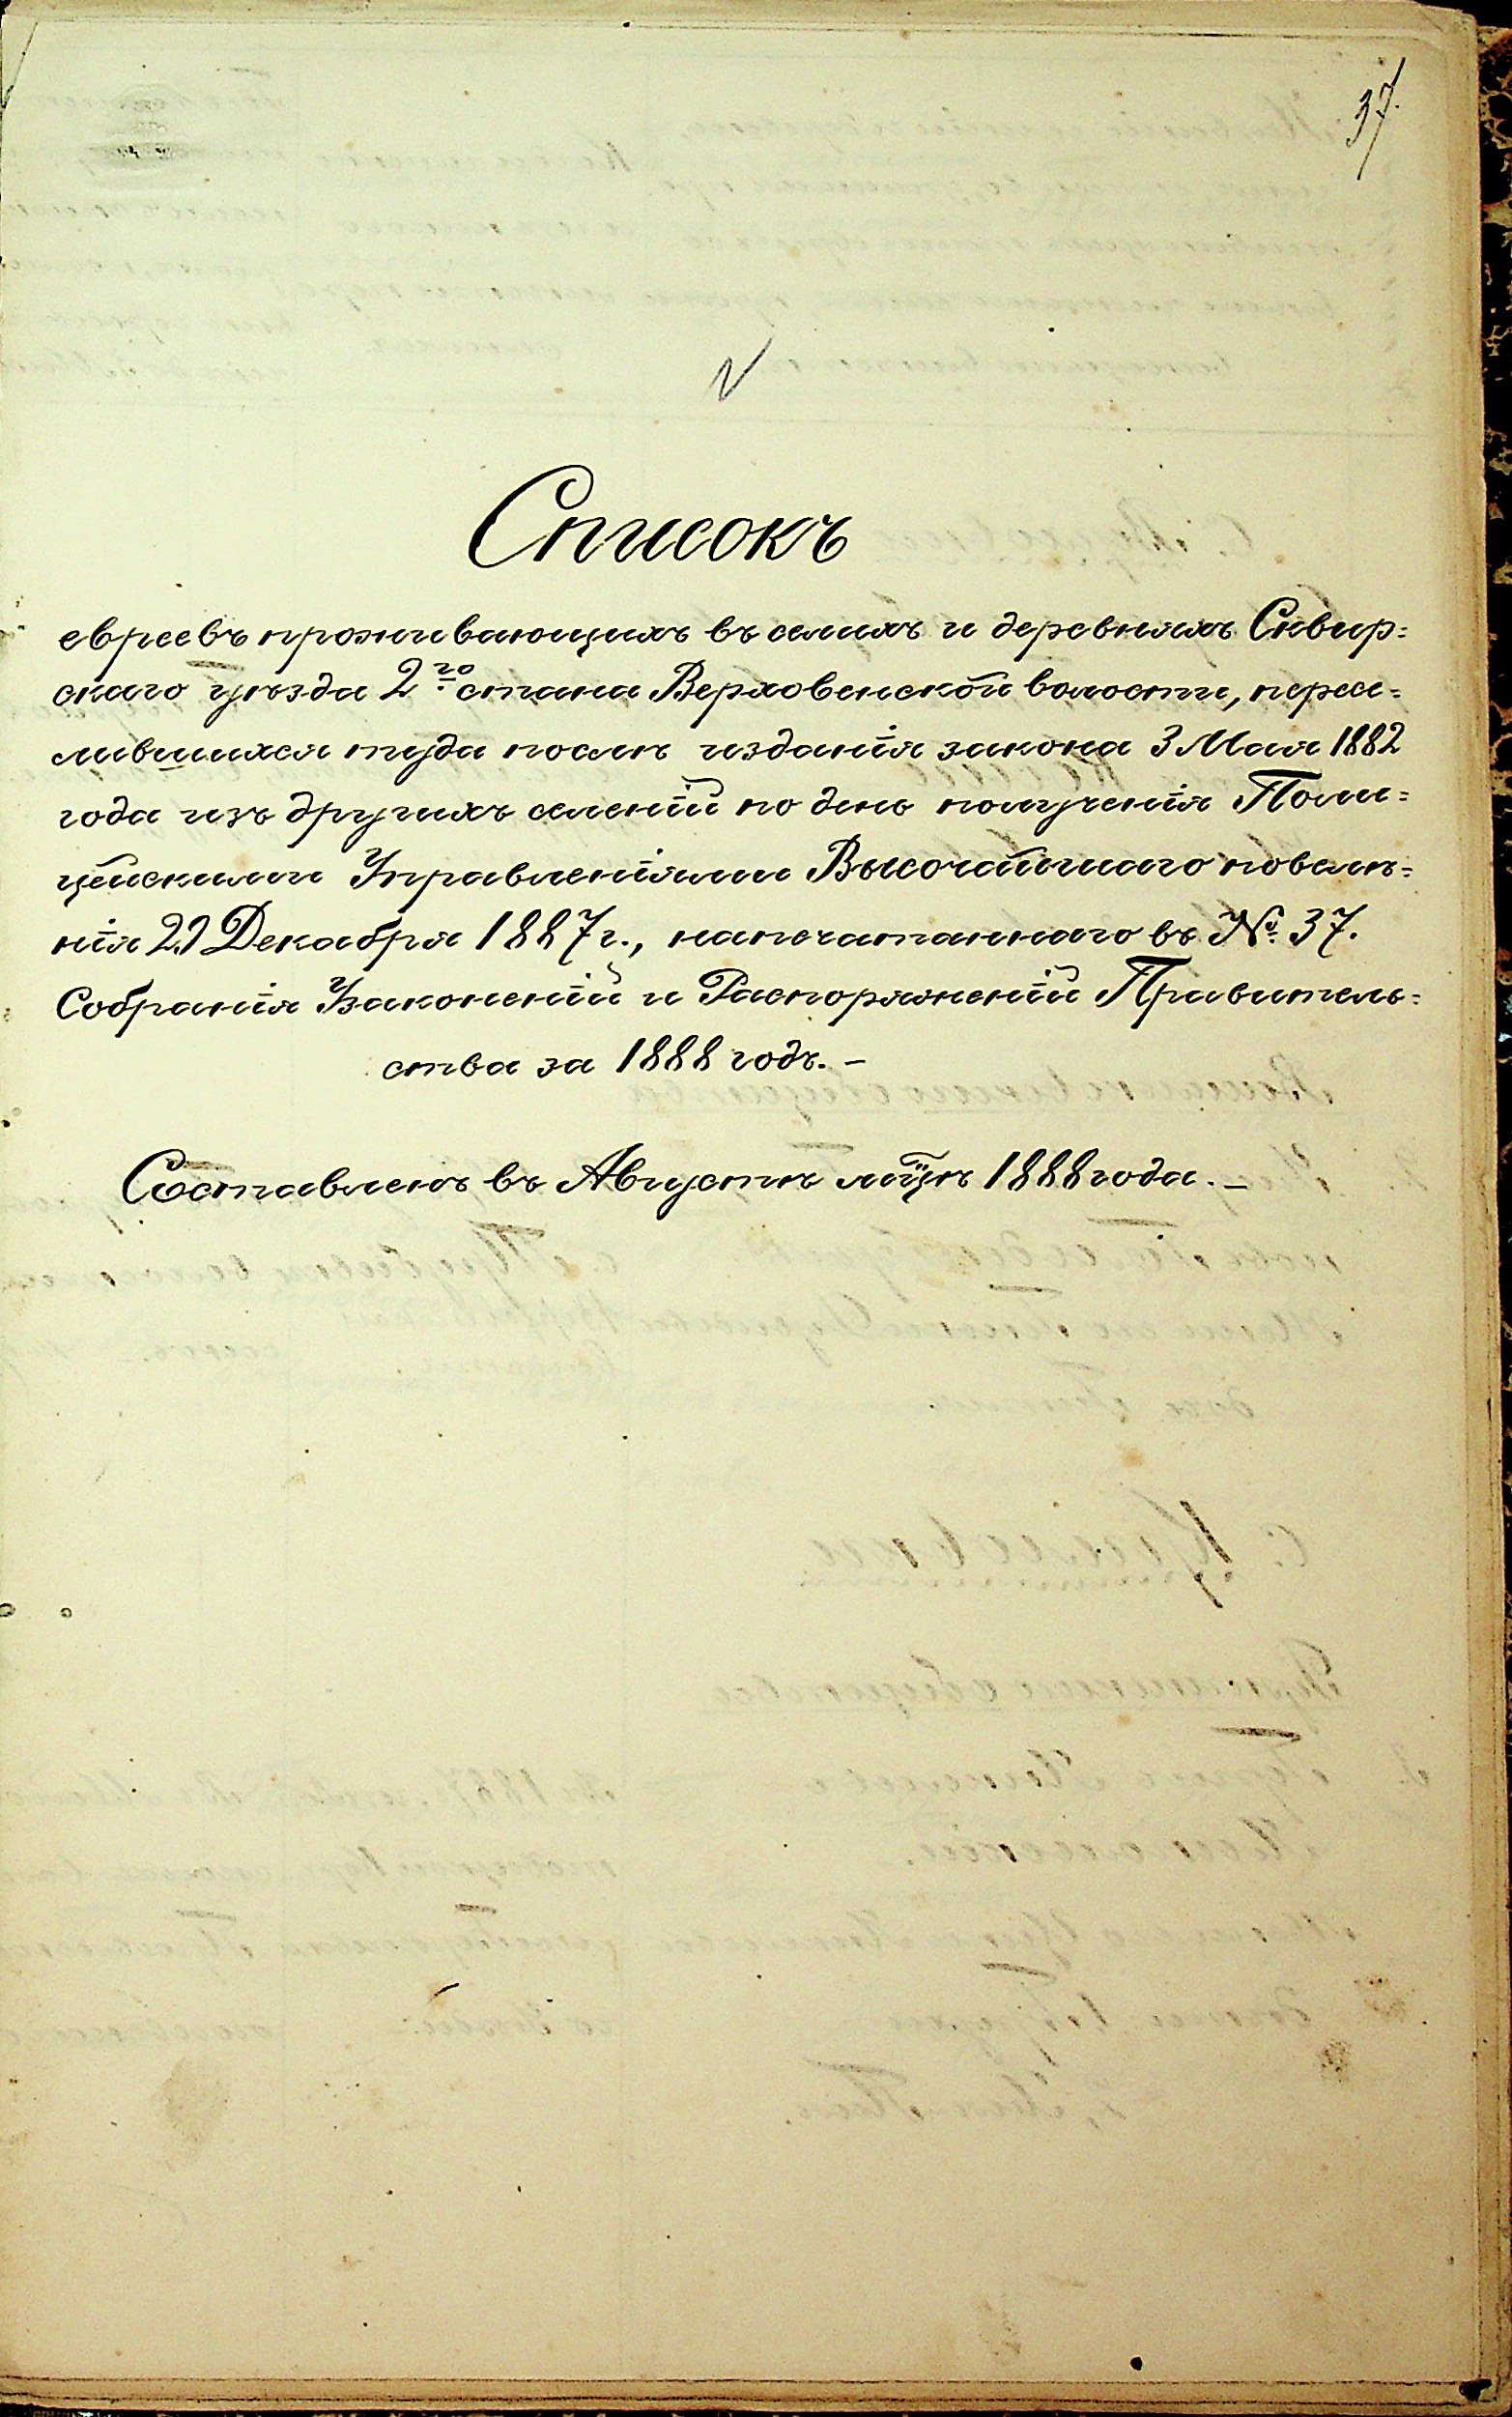 37.
Списокъ
евреевъ проживающихъ въ селахъ и деревняхъ Сквир=
скаго уѣзда 2го стана Верховенской волости, пересе=
лившихся туда послѣ изданія закона 3 Мая 1882
года изъ другихъ селеній по день полученія Поли=
цейскими Управленіями Высочайшаго повелѣ=
нія 29 Декабря 1887 г., напечатаннаго въ № 37.
Собранія Узаконеній и Распоряженій Правитель=
ства за 1888 годъ. –
Составленъ въ Августѣ мцѣ 1888 года. –